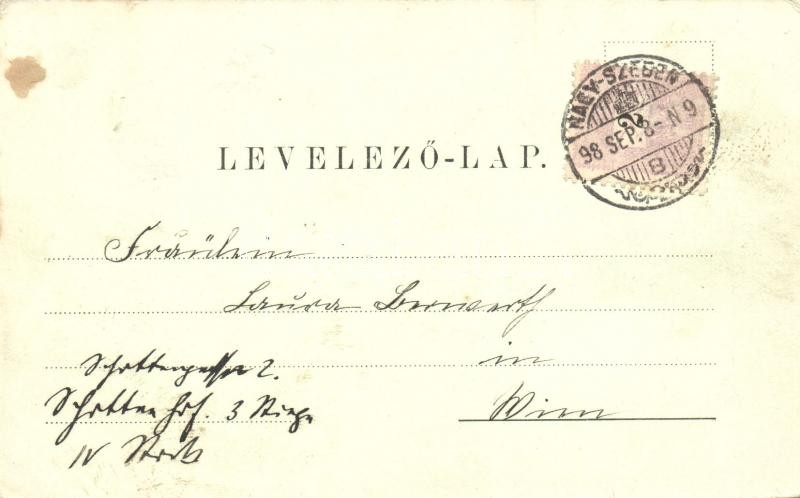 NAGY-SZEBEN
98 SEP. 8 - N 9
B
2
LEVELEZŐ-LAP.
Fräulein
Laura Berwerth
in
Wien
Schottengasse 2.
Schottenhof. 3 Stiege
IV Stock